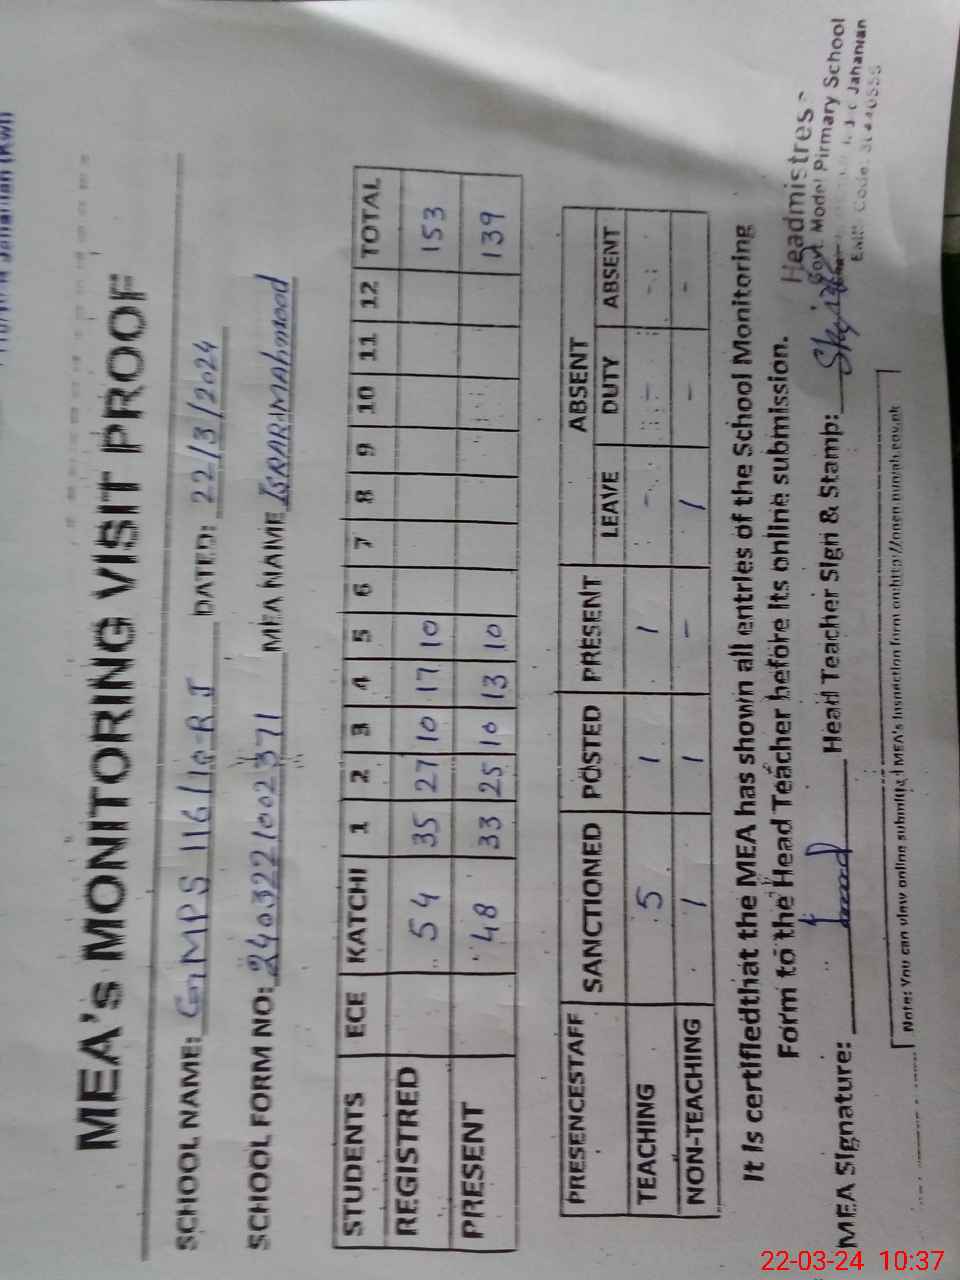 MEA's MONITORING VISIT PROOF
SCHOOL NAME: GMPS 116/10 R J DATED: 22/3/2024
SCHOOL FORM NO: 2403221002371 MEA NAME ISRAR MAHmood
STUDENTS ECE KATCHI 1 2 3 4 5 6 7 8 9 10 11 12 TOTAL
REGISTRED 54 35 27 10 17 10 153
PRESENT 48 33 25 10 13 10 139
PRESENCESTAFF SANCTIONED POSTED PRESENT ABSENT
LEAVE DUTY ABSENT
TEACHING 5 1 1 - - -
NON-TEACHING 1 1 - 1 - -
It is certifiedthat the MEA has shown all entries of the School Monitoring
Form to the Head Teacher before its online submission.
MEA Signature: Head Teacher Sign & Stamp:
Headmistress
Govt. Model Pirmary School
Jahanian
Note: You can view online submitted MEA's Inspection form on
22-03-24 10:37